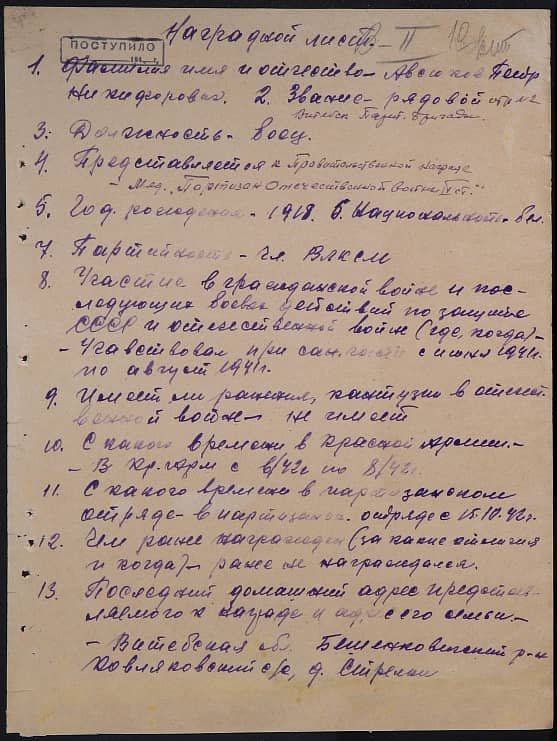 Наградной лист.
В-II
ПОСТУПИЛО
1. Фамилия имя и отчество - Авсюков Петр
Никифорович. 2. Звание - рядовой отр. №2
Витебск. Парт. бригады.
3. Должность - боец.
4. Представляется к Правительственной награде
- Мед. "Партизан Отечественной Войны II ст."
5. Год рождения - 1918. 6. Национальность - бел.
7. Партийность - чл. ВЛКСМ
8. Участие в гражданской войне и пос-
ледующих боевых действий по защите
СССР и отечественной войне (где, когда) -
- Участвовал при с июня 1941г.
по август 1941г.
9. Имеет ли ранения, контузии в отечест
венной войне - не имеет
10. С какого времени в Красной армии. -
- В Кр. арм с 6/42г по 8/42г.
11. С какого времени в партизанском
отряде - в партизанск. отряде с 15.10.42г.
12. Чем ранее награжден (за какие отличия
и когда) - ранее не награждался.
13. Последний домашний адрес представ-
ляемого к награде и адрес его семьи. -
- Витебская обл. Бешенковичский р-н
с/с, д. Стрелки